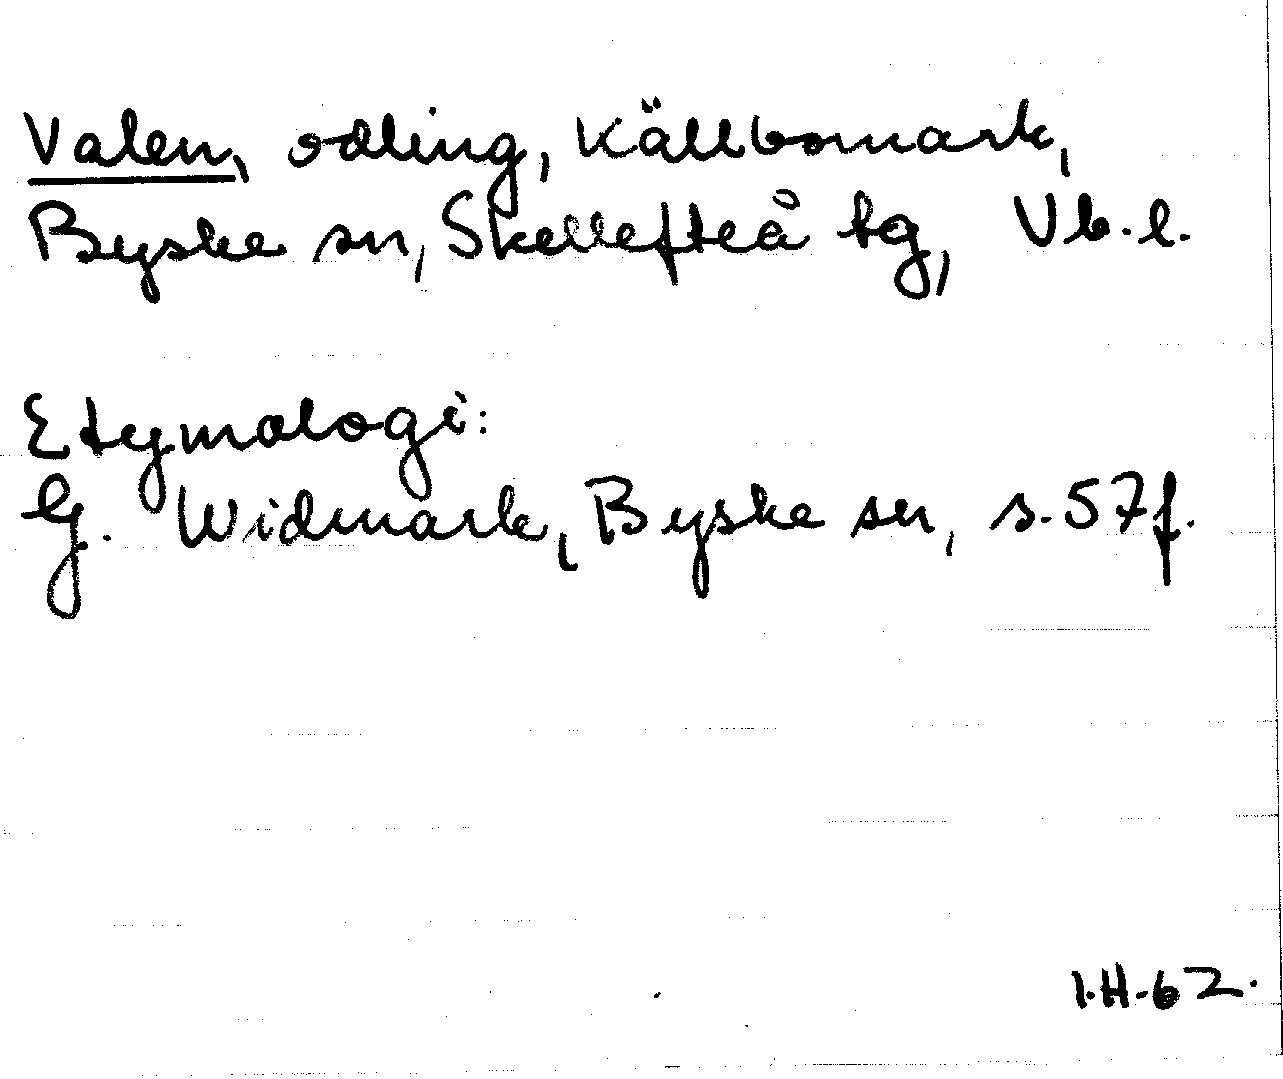 Valen, odling, Källbomark,
Byske sn, Skellefteå tg, Vb.l.
Etymologi:
G. Widmark, Byske sn, s. 57f.
I.H-62.